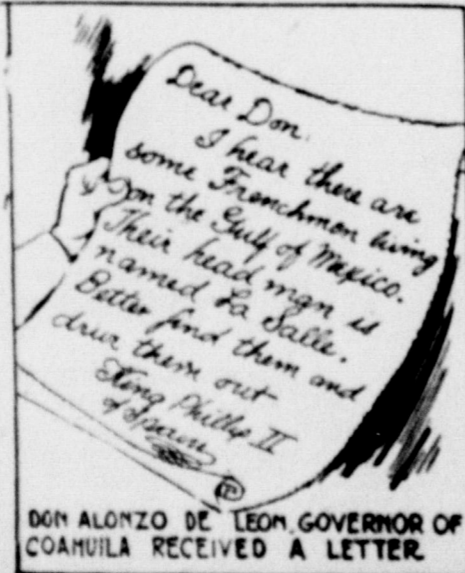 Dear Don.
I hear there are
some Frenchmen living
on the Gulf of Mexico.
Their head man is
named La Salle.
Better find them and
driv them out
King Phillip II
of Spain
DON ALONZO DE LEON, GOVERNOR OF
COAHUILA RECEIVED A LETTER